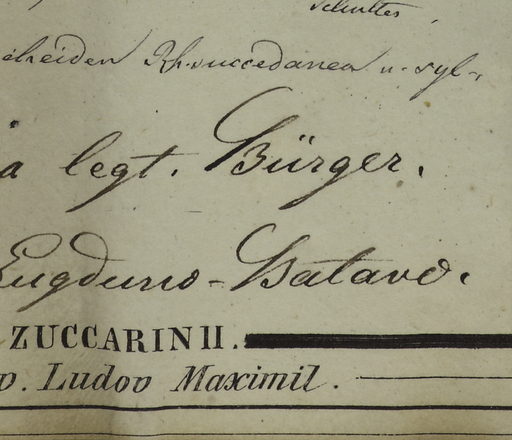 Schultes
cheiden Rh. succedanea u. syl-
a legt. Bürger.
Lugduno-Batavo.
ZUCCARINII.
v. Ludov Maximil.